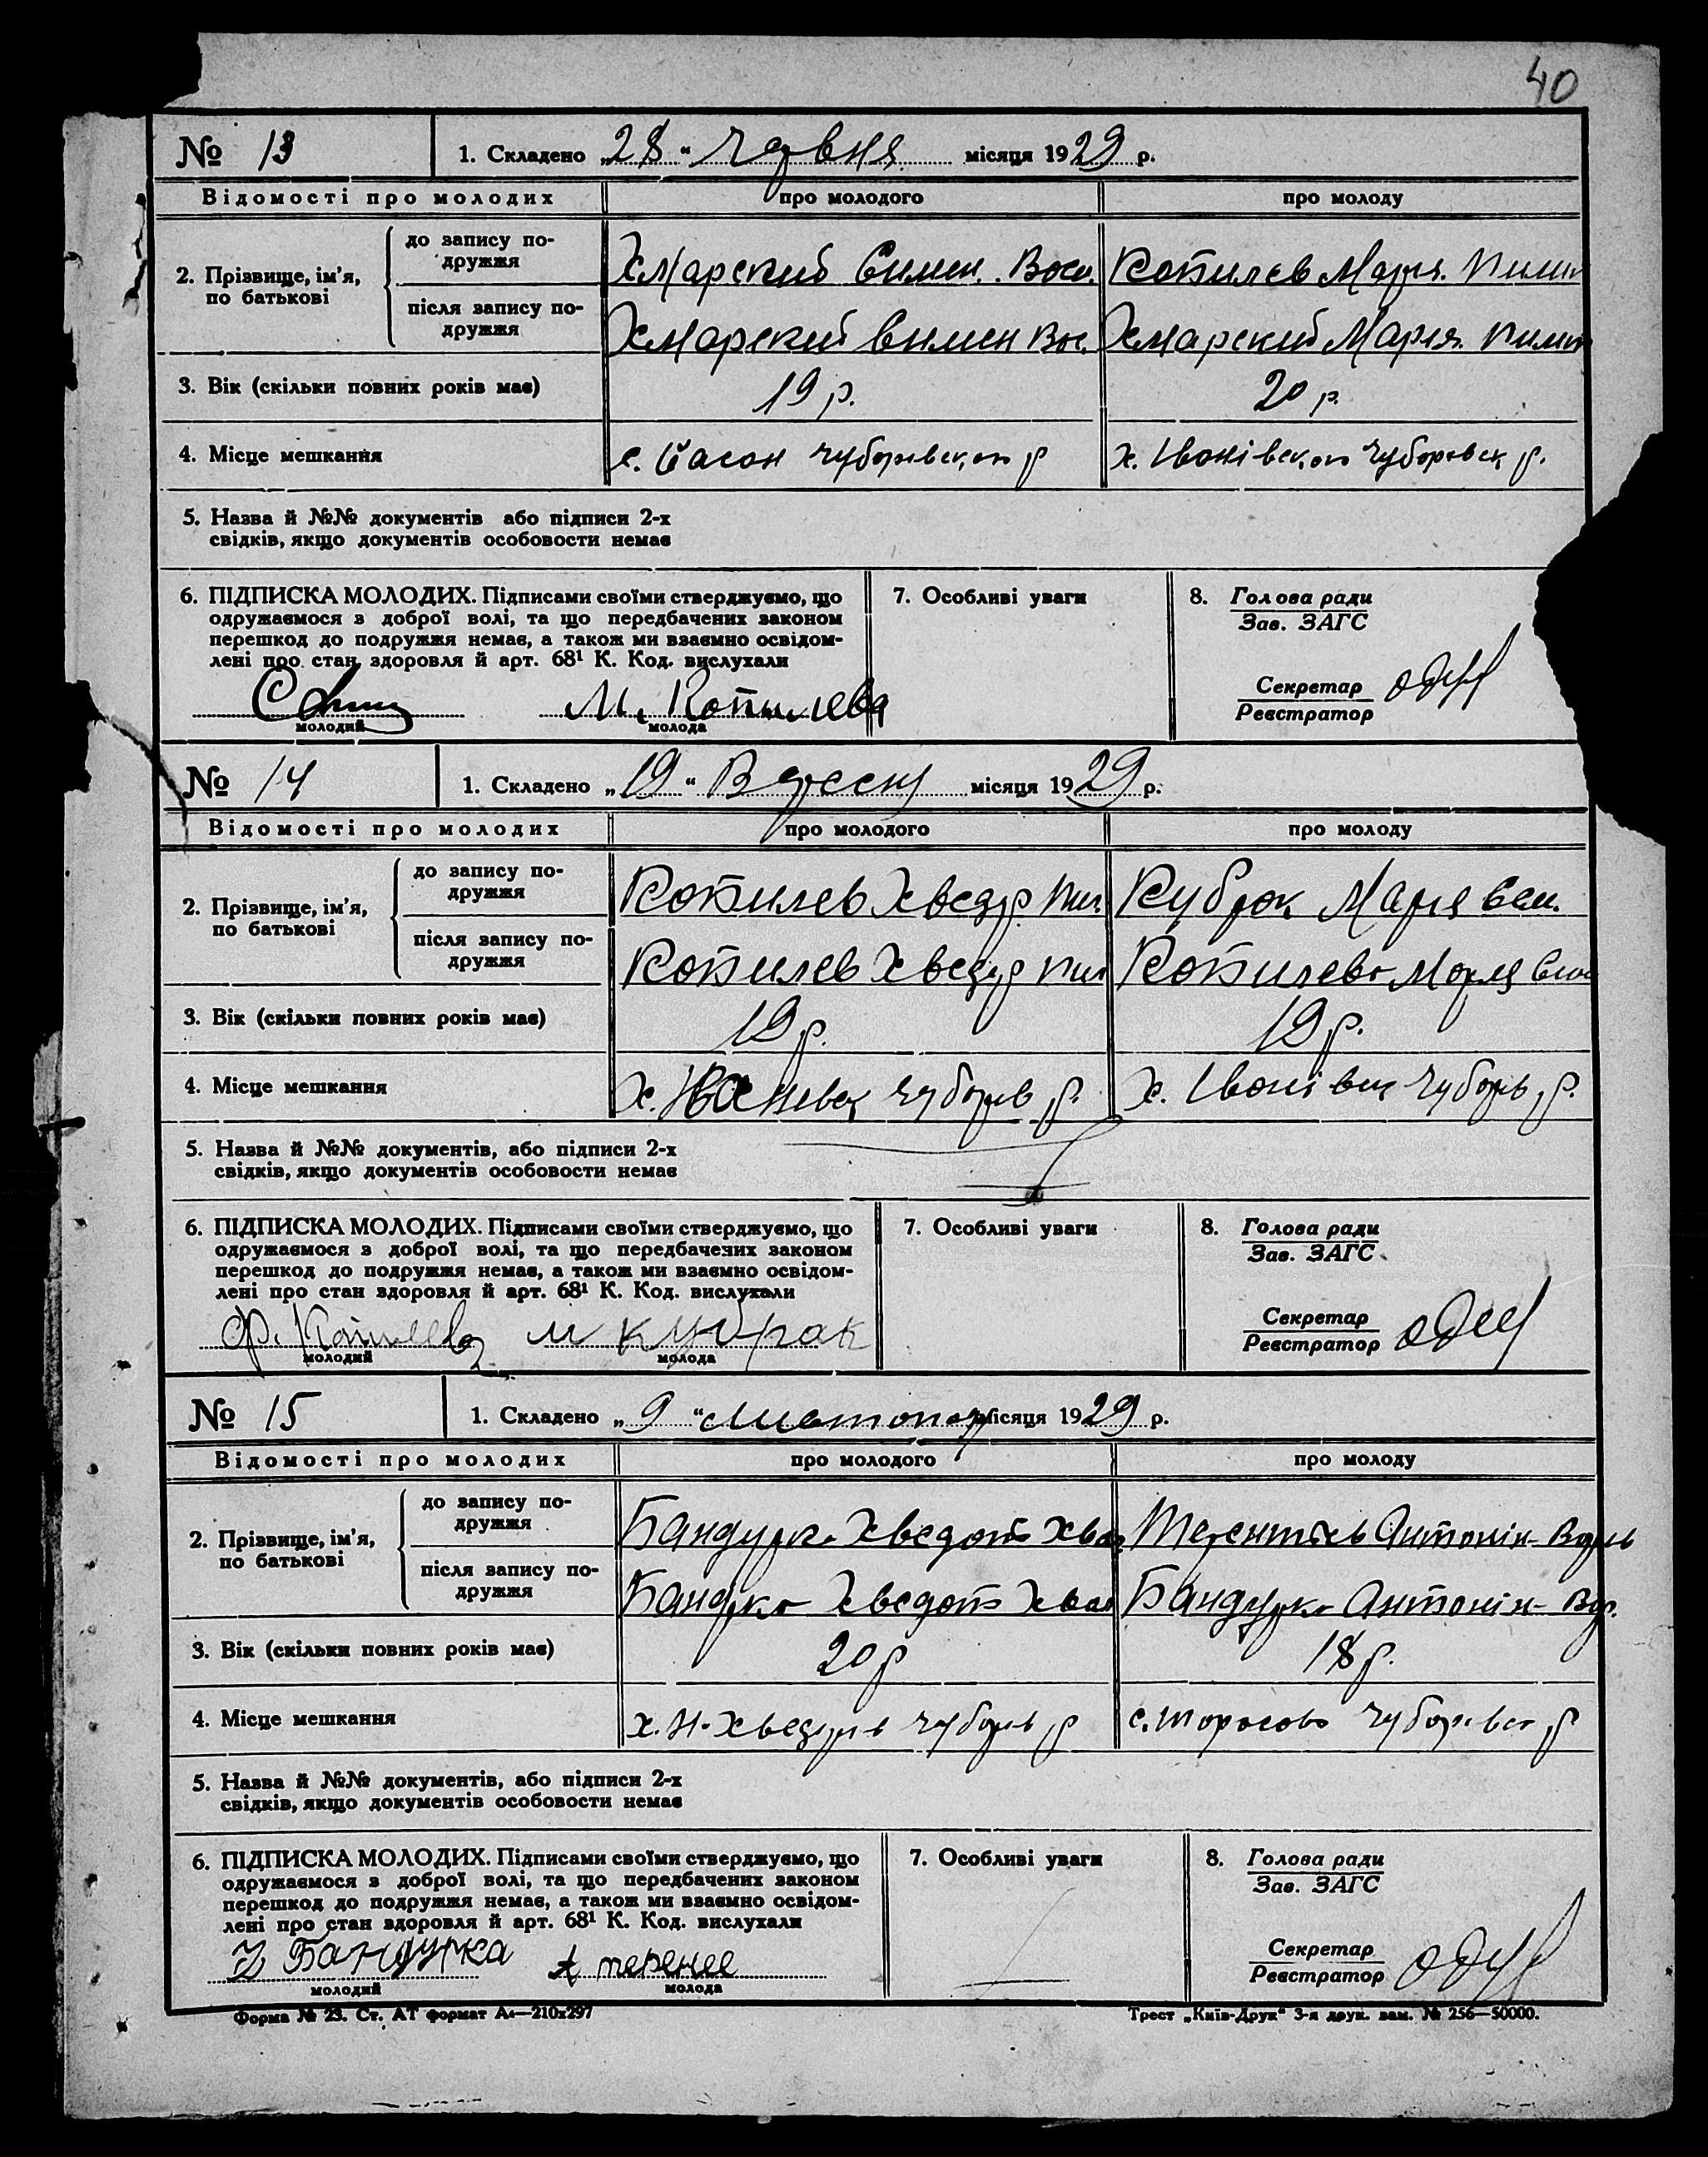 40
№ 13 1. Складено „28“ червня місяця 1929 р.
Відомості про молодих про молодого про молоду
2. Прізвище, ім’я, по батькові
до запису подружжя Хмарский Симен. Вас. Копилев Мария. Пилип
після запису подружжя Хмарский Симен Вас. Хмарский Мария. Пилип
3. Вік (скільки повних років має) 19 р. 20 р.
4. Місце мешкання с. р х. р.
5. Назва й №№ документів або підписи 2-х
свідків, якщо документів особовости немає
6. ПІДПИСКА МОЛОДИХ. Підписами своїми стверджуємо, що
одружаємося з доброї волі, та що передбачених законом
перешкод до подружжя немає, а також ми взаємно освідом-
лені про стан здоровля й арт. 68¹ К. Код. вислухали
7. Особливі уваги
8. Голова ради
Зав. ЗАГС
Секретар
Реєстратор
М. Копилева
молодий молода
№ 14 1. Складено „19“ Вересня місяця 1929 р.
Відомості про молодих про молодого про молоду
2. Прізвище, ім’я, по батькові
до запису подружжя Копилев Хведір Пил. Кубрак Мария
після запису подружжя Копилев Хведір Пил Копилева Мария
3. Вік (скільки повних років має) 19 р. 19 р.
4. Місце мешкання х. р. х. р.
5. Назва й №№ документів, або підписи 2-х
свідків, якщо документів особовости немає
6. ПІДПИСКА МОЛОДИХ. Підписами своїми стверджуємо, що
одружаємося з доброї волі, та що передбачених законом
перешкод до подружжя немає, а також ми взаємно освідом-
лені про стан здоровля й арт. 68¹ К. Код. вислухали
7. Особливі уваги
8. Голова ради
Зав. ЗАГС
Секретар
Реєстратор
Ф. Копилев м кубрак
молодий молода
№ 15 1. Складено „9“ Листопад місяця 1929 р.
Відомості про молодих про молодого про молоду
2. Прізвище, ім’я, по батькові
до запису подружжя Бандурка Хведот Терентьев Антоніна
після запису подружжя Бандурка Хведот Бандурка Антоніна
3. Вік (скільки повних років має) 20 р 18 р.
4. Місце мешкання х. р с. р
5. Назва й №№ документів, або підписи 2-х
свідків, якщо документів особовости немає
6. ПІДПИСКА МОЛОДИХ. Підписами своїми стверджуємо, що
одружаємося з доброї волі, та що передбачених законом
перешкод до подружжя немає, а також ми взаємно освідом-
лені про стан здоровля й арт. 68¹ К. Код. вислухали
7. Особливі уваги
8. Голова ради
Зав. ЗАГС
Секретар
Реєстратор
Бандурка
молодий молода
Форма № 23. Ст. АТ формат А₄—210х297
Трест „Київ-Друк“ 3-я друк. зам. № 256—50000.